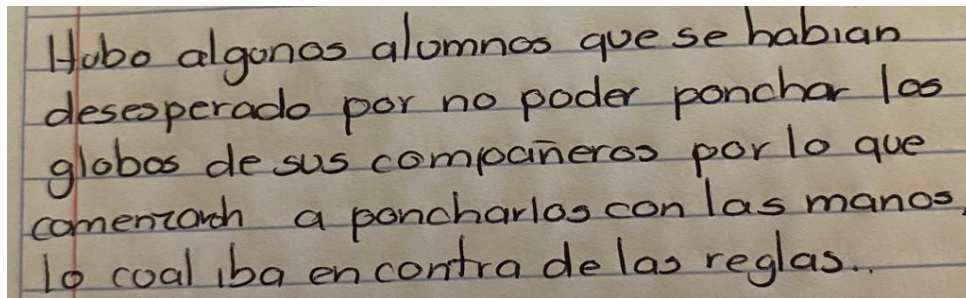 Hubo algunos alumnos que se habian
desesperado por no poder ponchar los
globos de sus compañeros por lo que
comenzaron a poncharlos con las manos,
lo cual iba en contra de las reglas..